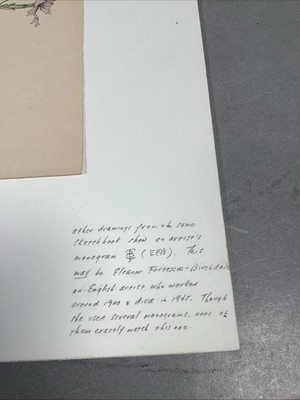 other drawings from the same
sketchbook show an artist's
monogram (EFB). This
may be Eleanor Fortescue-Brickdale
an English artist who worked
around 1900 & died in 1945. Though
she used several monograms, none of
them exactly match this one.